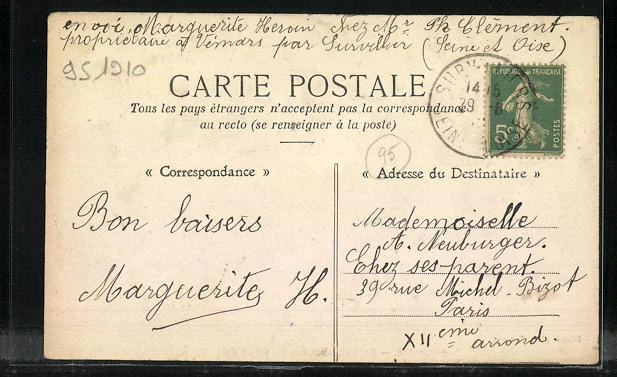 envoi, Marguerite Heroin chez Mr Ph Clément.
propriétaire à Vémars par Survilliers (Seine et Oise)
951910
CARTE POSTALE
Tous les pays étrangers n'acceptent pas la correspondance
au recto (se renseigner à la poste)
RÉPUBLIQUE FRANÇAISE
5c
POSTES
95
« Correspondance »
Bon baisers
Marguerite H.
« Adresse du Destinataire »
Mademoiselle
A. Neuburger.
Chez ses parent.
39 rue Michel-Bizot
Paris
XIIeme arrond.